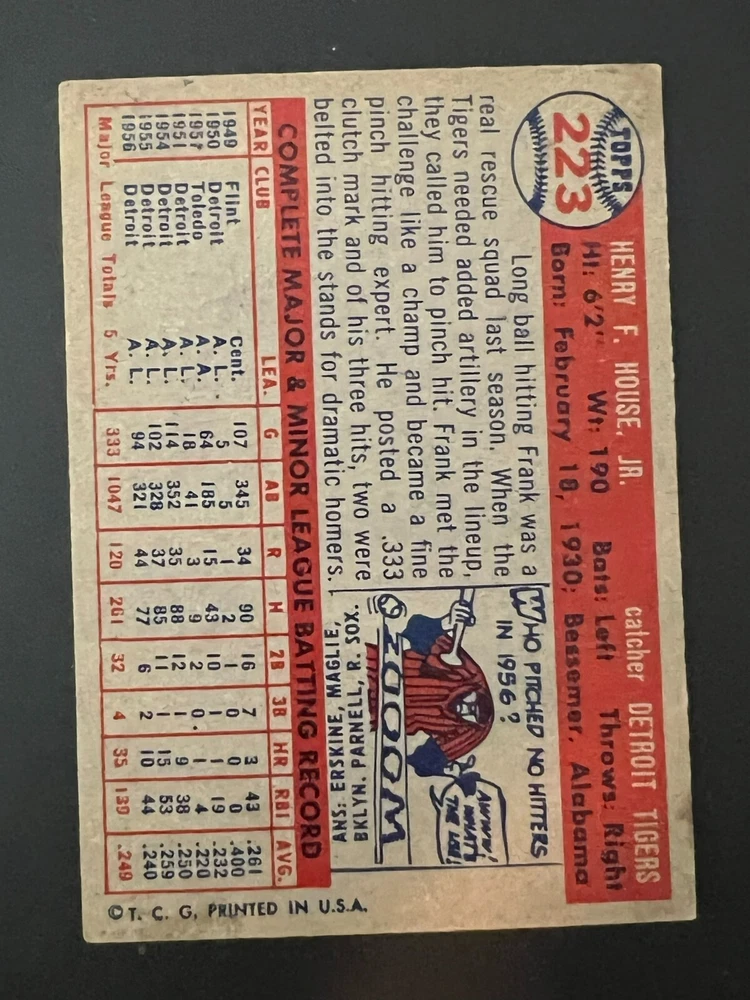 TOPPS
223
HENRY F. HOUSE, JR. catcher DETROIT TIGERS
Ht: 6'2" Wt: 190 Bats: Left Throws: Right
Born: February 18, 1930; Bessemer, Alabama
Long ball hitting Frank was a
real rescue squad last season. When the
Tigers needed added artillery in the lineup,
they called him to pinch hit. Frank met the
challenge like a champ and became a fine
pinch hitting expert. He posted a .333
clutch mark and of his three hits, two were
belted into the stands for dramatic homers.
WHO PITCHED NO HITTERS
IN 1956?
AWWW!
WHAT'S
THE USE!
ZOOOM
ANS: ERSKINE, MAGLIE,
BKLYN. PARNELL, R. SOX.
COMPLETE MAJOR & MINOR LEAGUE BATTING RECORD
YEAR CLUB LEA. G AB R H 2B 3B HR RBI AVG.
1949 Flint Cent. 107 345 34 90 16 7 3 43 .261
1950 Detroit A. L. 5 5 1 2 1 0 0 0 .400
1951 Toledo A. A. 64 185 15 43 10 1 1 19 .232
1951 Detroit A. L. 18 41 3 9 2 0 1 4 .220
1954 Detroit A. L. 114 352 35 88 12 1 9 38 .250
1955 Detroit A. L. 102 328 37 85 11 1 15 53 .259
1956 Detroit A. L. 94 321 44 77 6 2 10 44 .240
Major League Totals 5 Yrs. 333 1047 120 261 32 4 35 139 .249
© T. C. G, PRINTED IN U.S.A.